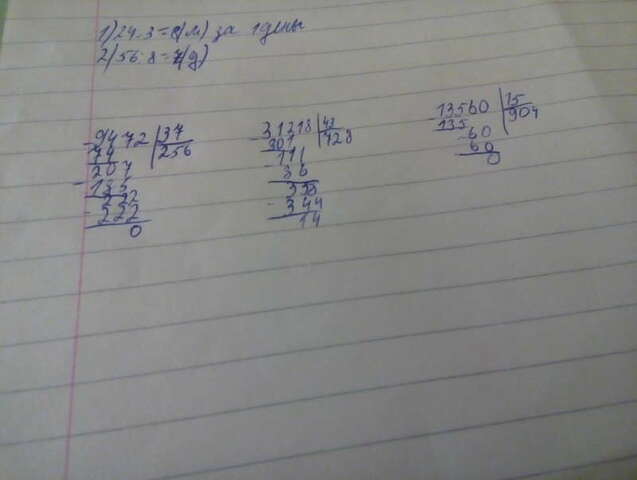 1) 24:3=8(м) за 1 день
2) 56:8=7(д)
9472 | 37
74 | 256
207
185
222
222
0
31318 | 43
301 | 728
121
86
358
344
14
13560 | 15
135 | 904
60
60
0